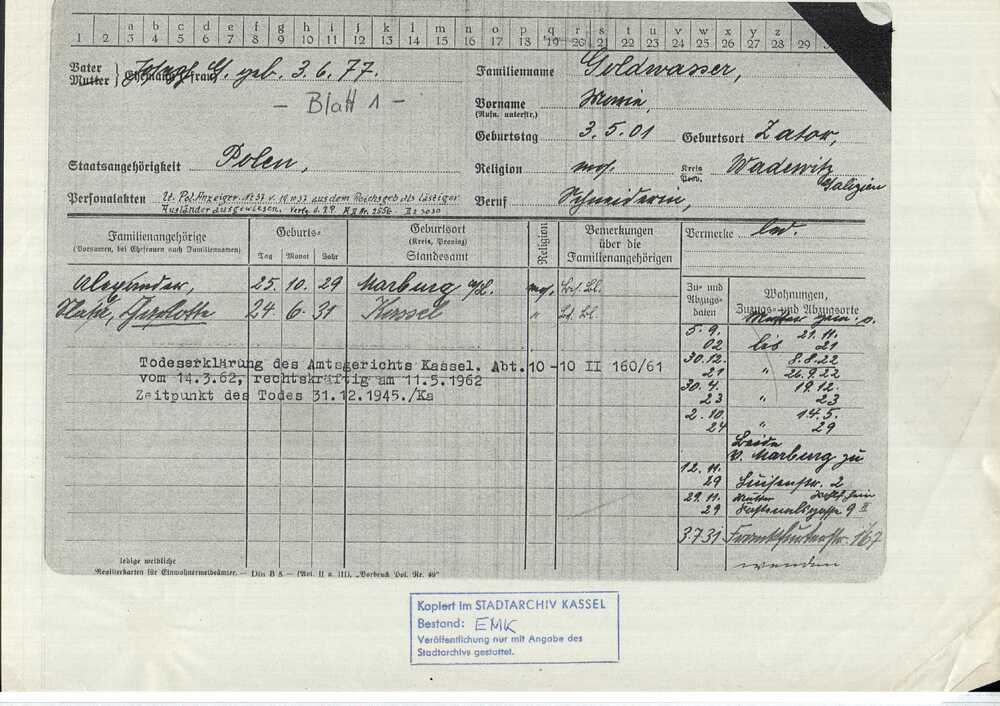 a b c d e f g h i k l m n o p q r s t u v w x y z
1 2 3 4 5 6 7 8 9 10 11 12 13 14 15 16 17 18 19 20 21 22 23 24 25 26 27 28 29
Vater
Mutter
Ehemann (-frau)
Joseph G. geb. 3.6.77.
- Blatt 1 -
Familienname Goldwasser,
Vorname
(Rufn. unterstr.)
Geburtstag 3.5.01 Geburtsort Zator,
Staatsangehörigkeit Polen,
Religion mos.
Kreis
Prov.
Wadowitz
Galizien
Personalakten Lt. Pol. Anzeiger Nr. 37 v. 19.11.37 aus dem Reichsgeb. als lästiger
Ausländer ausgewiesen. Verfg. d. R.P. A II Nr. 2556
Beruf Schneiderin,
Familienangehörige
(Vornamen, bei Ehefrauen auch Familiennamen)
Geburts-
Tag Monat Jahr
Geburtsort
(Kreis, Provinz)
Standesamt
Religion
Bemerkungen
über die
Familienangehörigen
Vermerke led.
Alexander, 25. 10. 29 Marburg a/L. mos.
Charlotte 24. 6. 31 Kassel "
Todeserklärung des Amtsgerichts Kassel. Abt.10 -10 II 160/61
vom 14.3.62, rechtskräftig am 11.5.1962
Zeitpunkt des Todes 31.12.1945./Ka
Zu- und
Abzugs-
daten
Wohnungen,
Zuzugs- und Abzugsorte
5.9. 21.11.
02 bis 21
30.12. 8.8.22
21 " 26.9.22
30.4. 19.12.
23 " 23
2.10. 14.5.
24 " 29
Beide
v. Marburg zu
12.11.
29 Luisenstr. 2
29.11. Mutter
29 9 II
3.7.31 Frankfurterstr. 167
wenden
ledige weibliche
Registerkarten für Einwohnermeldeämter. — Din B 5 — (Abt. II u. III), „Vordruck Pol. Nr. 49"
Kopiert im STADTARCHIV KASSEL
Bestand: EMK
Veröffentlichung nur mit Angabe des
Stadtarchivs gestattet.